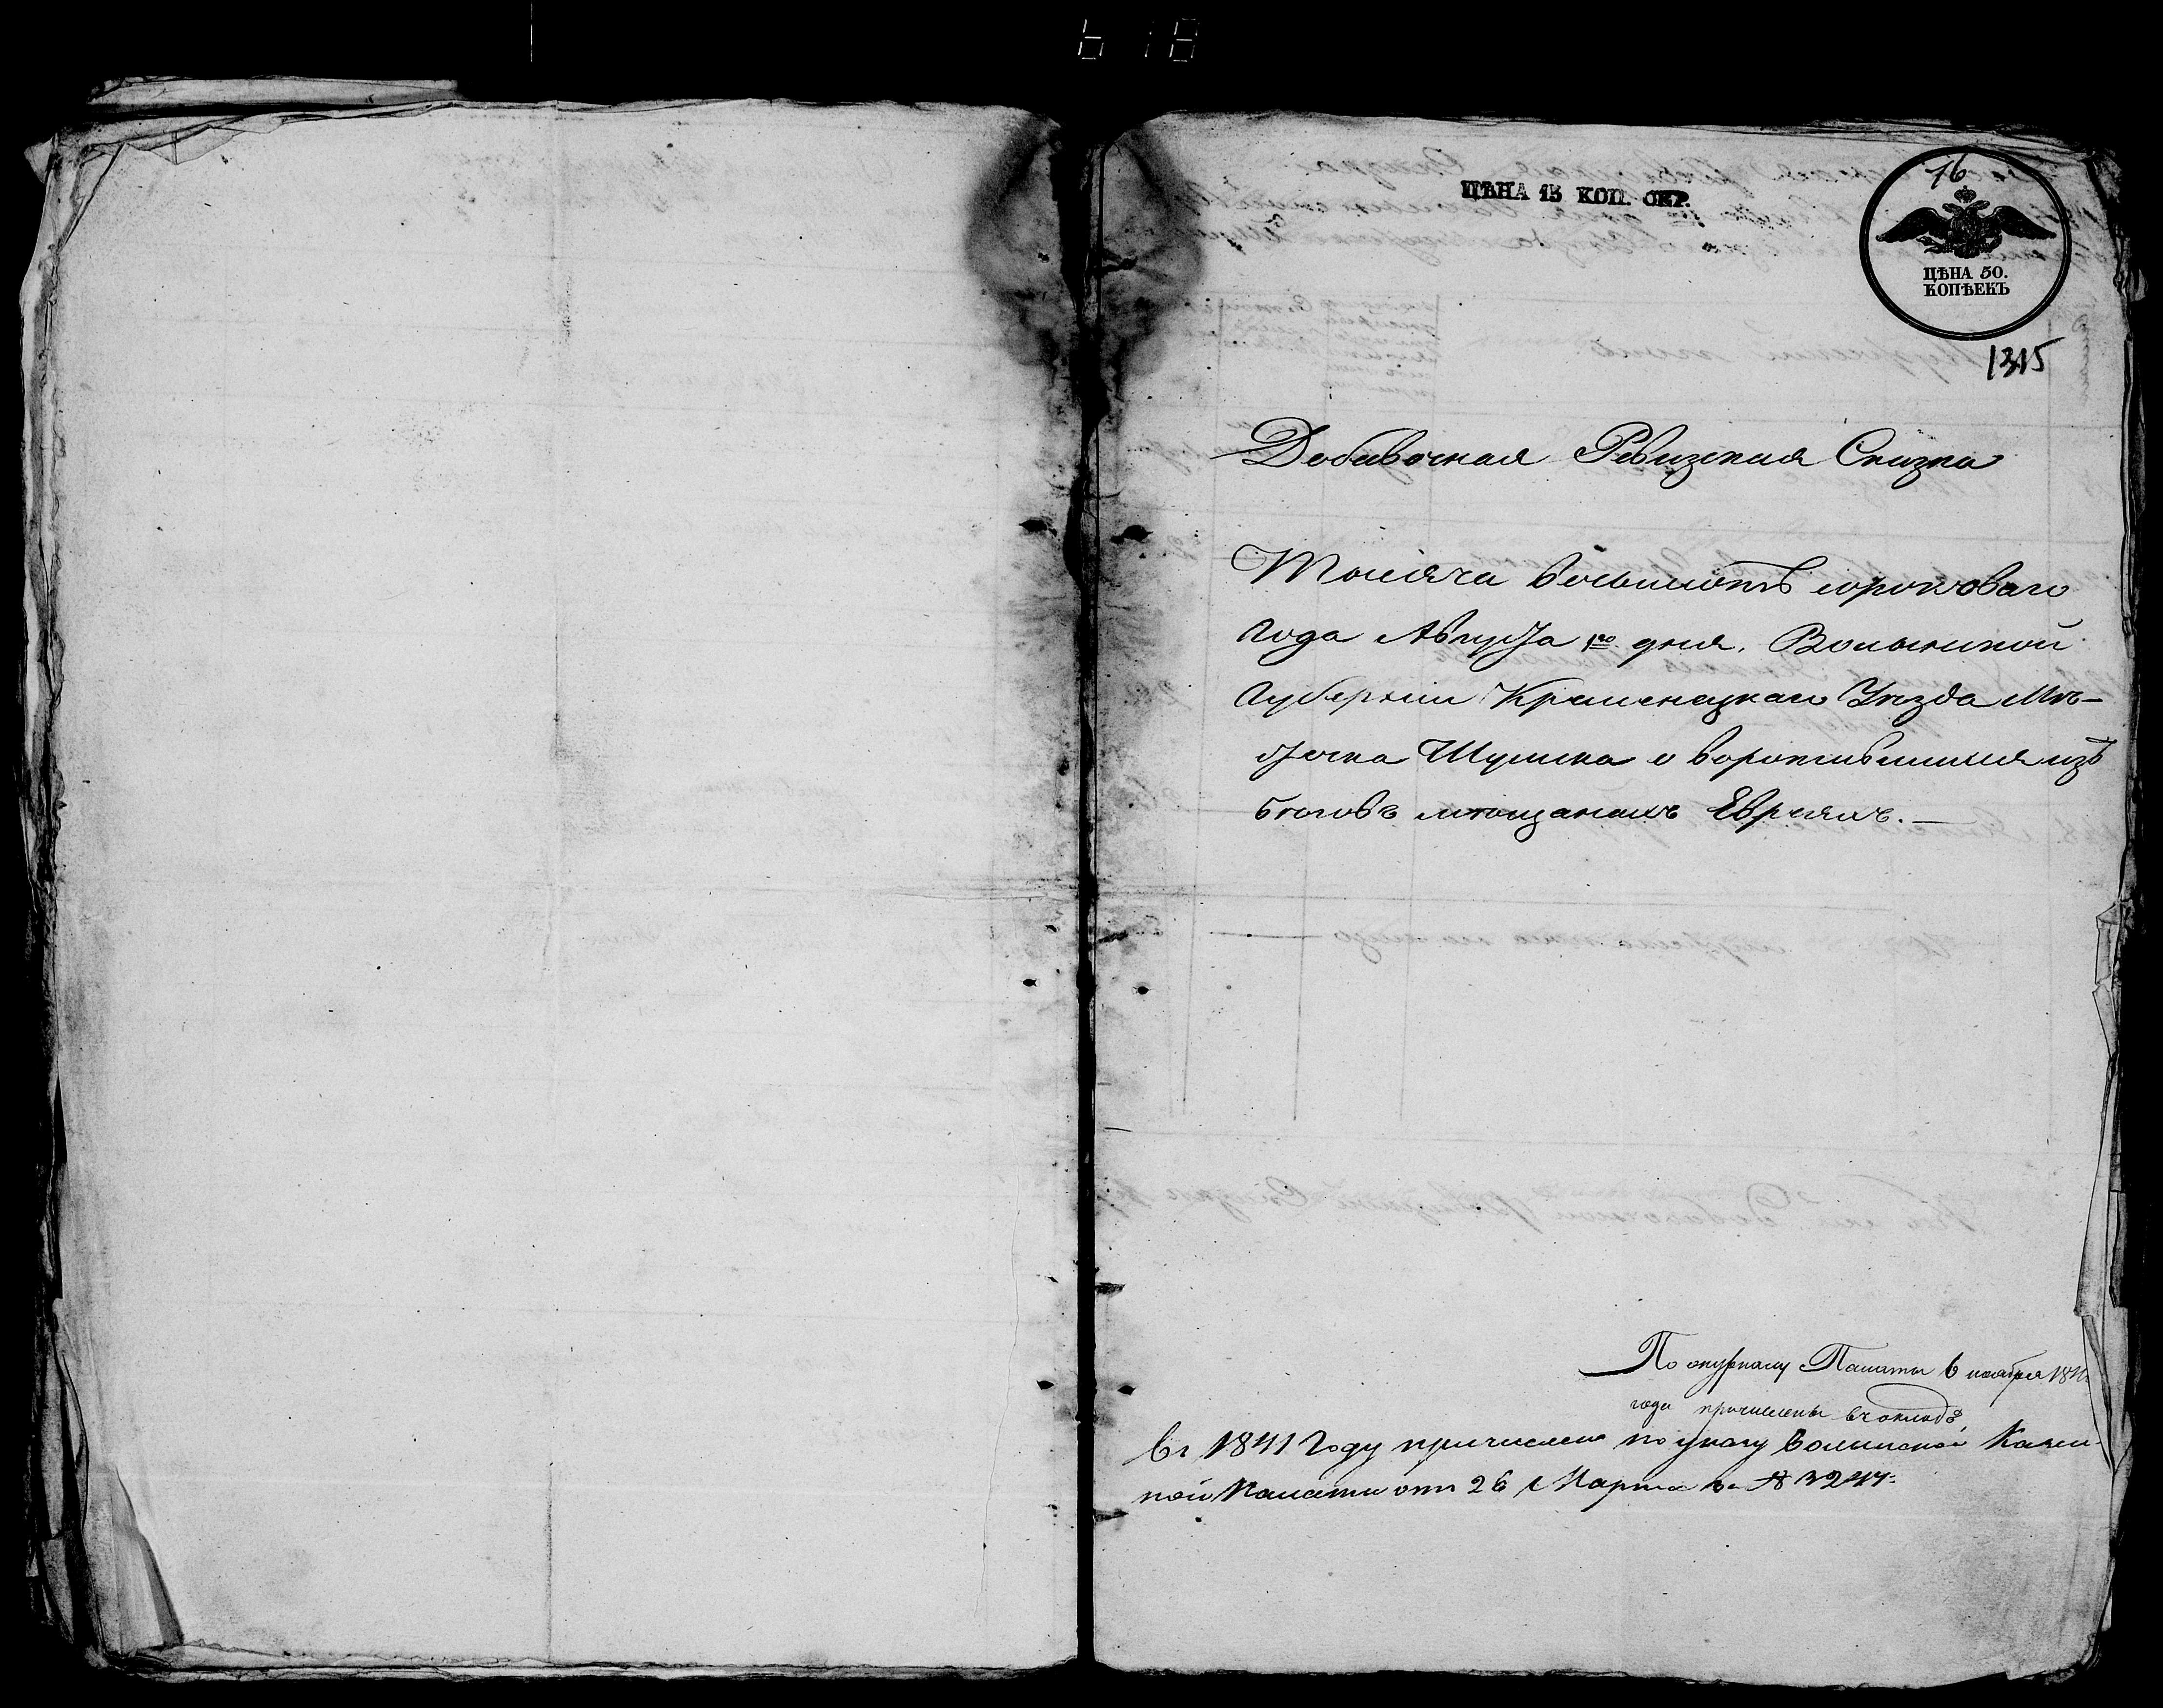 618
ЦѢНА 15 КОП. СЕР.
76
ЦѢНА 50.
КОПѢЕКЪ
1315
Добавочная Ревизская Сказка
Тысяча восьмсотъ сороковаго
года Августа 1го дня, Волынской
Губерніи Кременецкаго Уезда Мѣ-
стечка Шумска о воротившихся изъ
беговъ мещанахъ Евреяхъ. —
По Палаты 6 ноября
года причислены въ окладъ
Въ 1841 Году причислены по указу Волынской Казен-
ной Палаты отъ 26 Марта за №